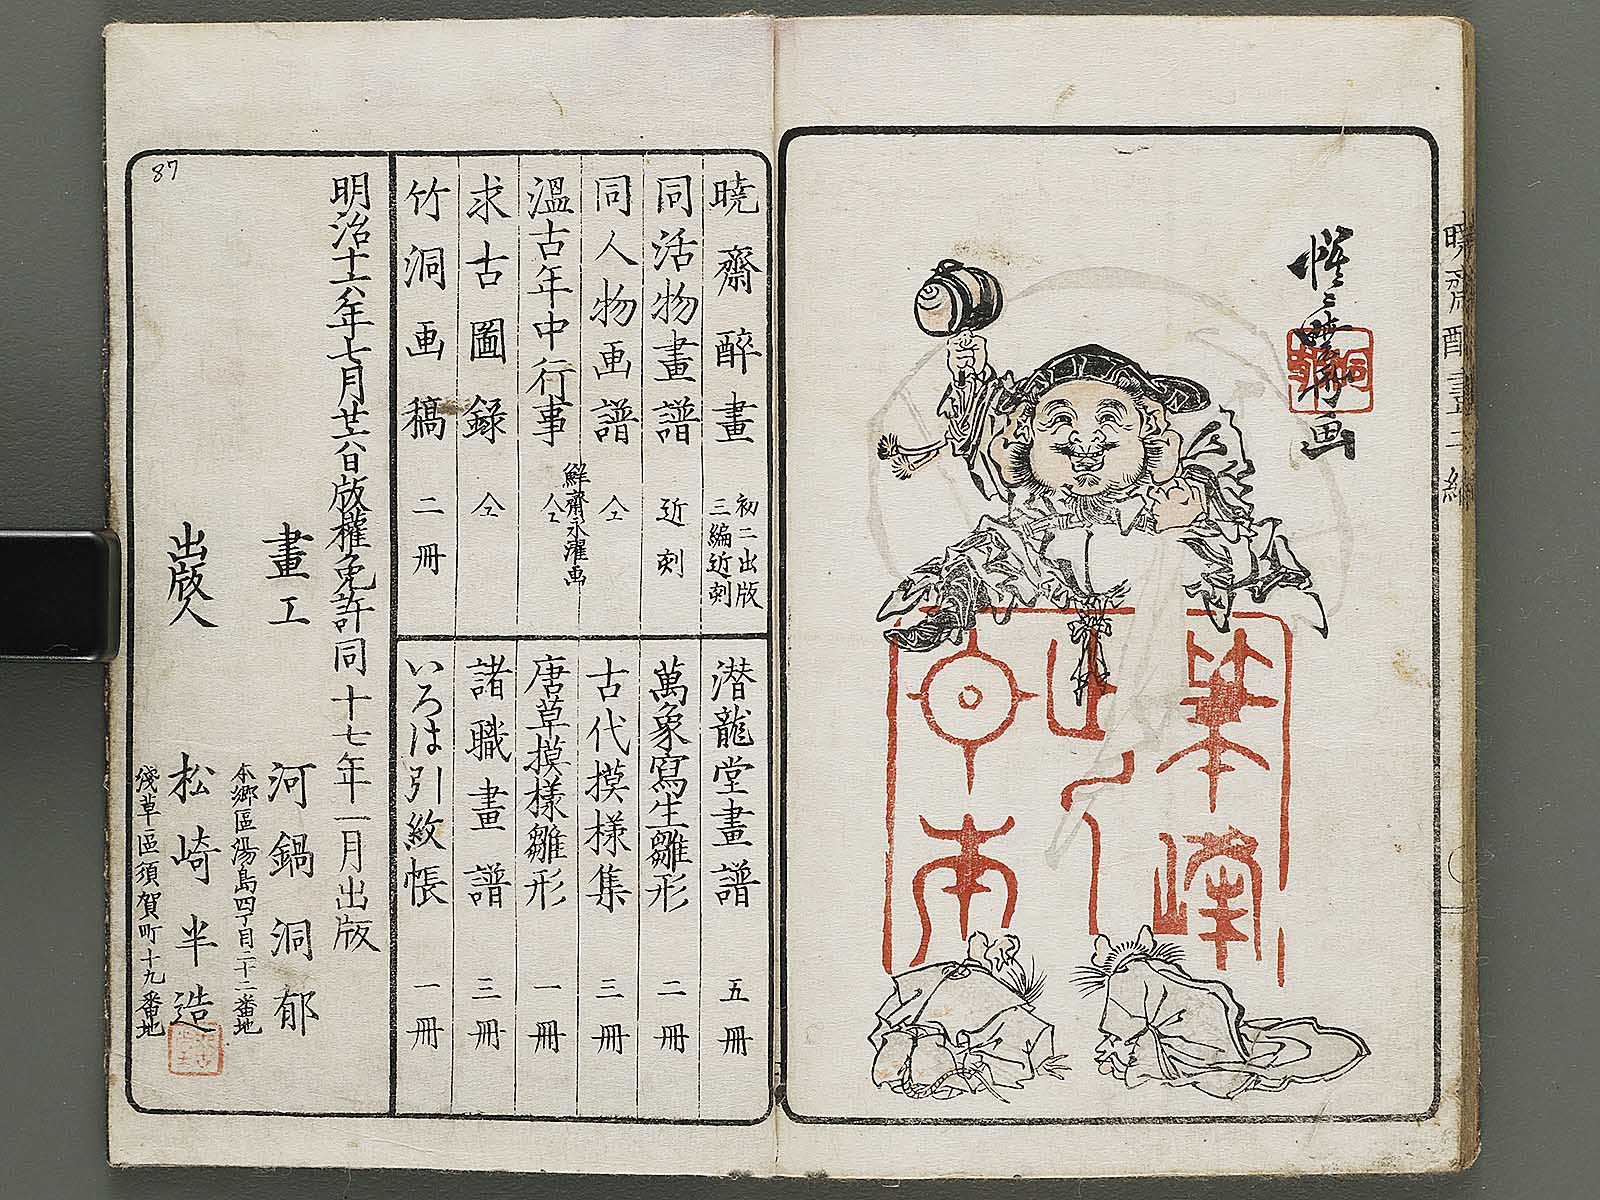 惺々暁斎画
洞郁
暁齋酔畫二編
暁齋醉畫 初二出版 三編近刻
同活物畫譜 近刻
同人物画譜 仝
溫古年中行事 鮮齋永濯画 仝
求古圖録 仝
竹洞画稿 二冊
潜龍堂畫譜 五冊
萬象寫生雛形 二冊
古代摸様集 三冊
唐草摸様雛形 一冊
諸職畫譜 三冊
いろは引紋帳 一冊
明治十六年七月廿六日版權免許同十七年一月出版
畫工 河鍋洞郁
本郷區湯島四丁目二十二番地
出版人 松崎半造
淺草區須賀町十九番地
87